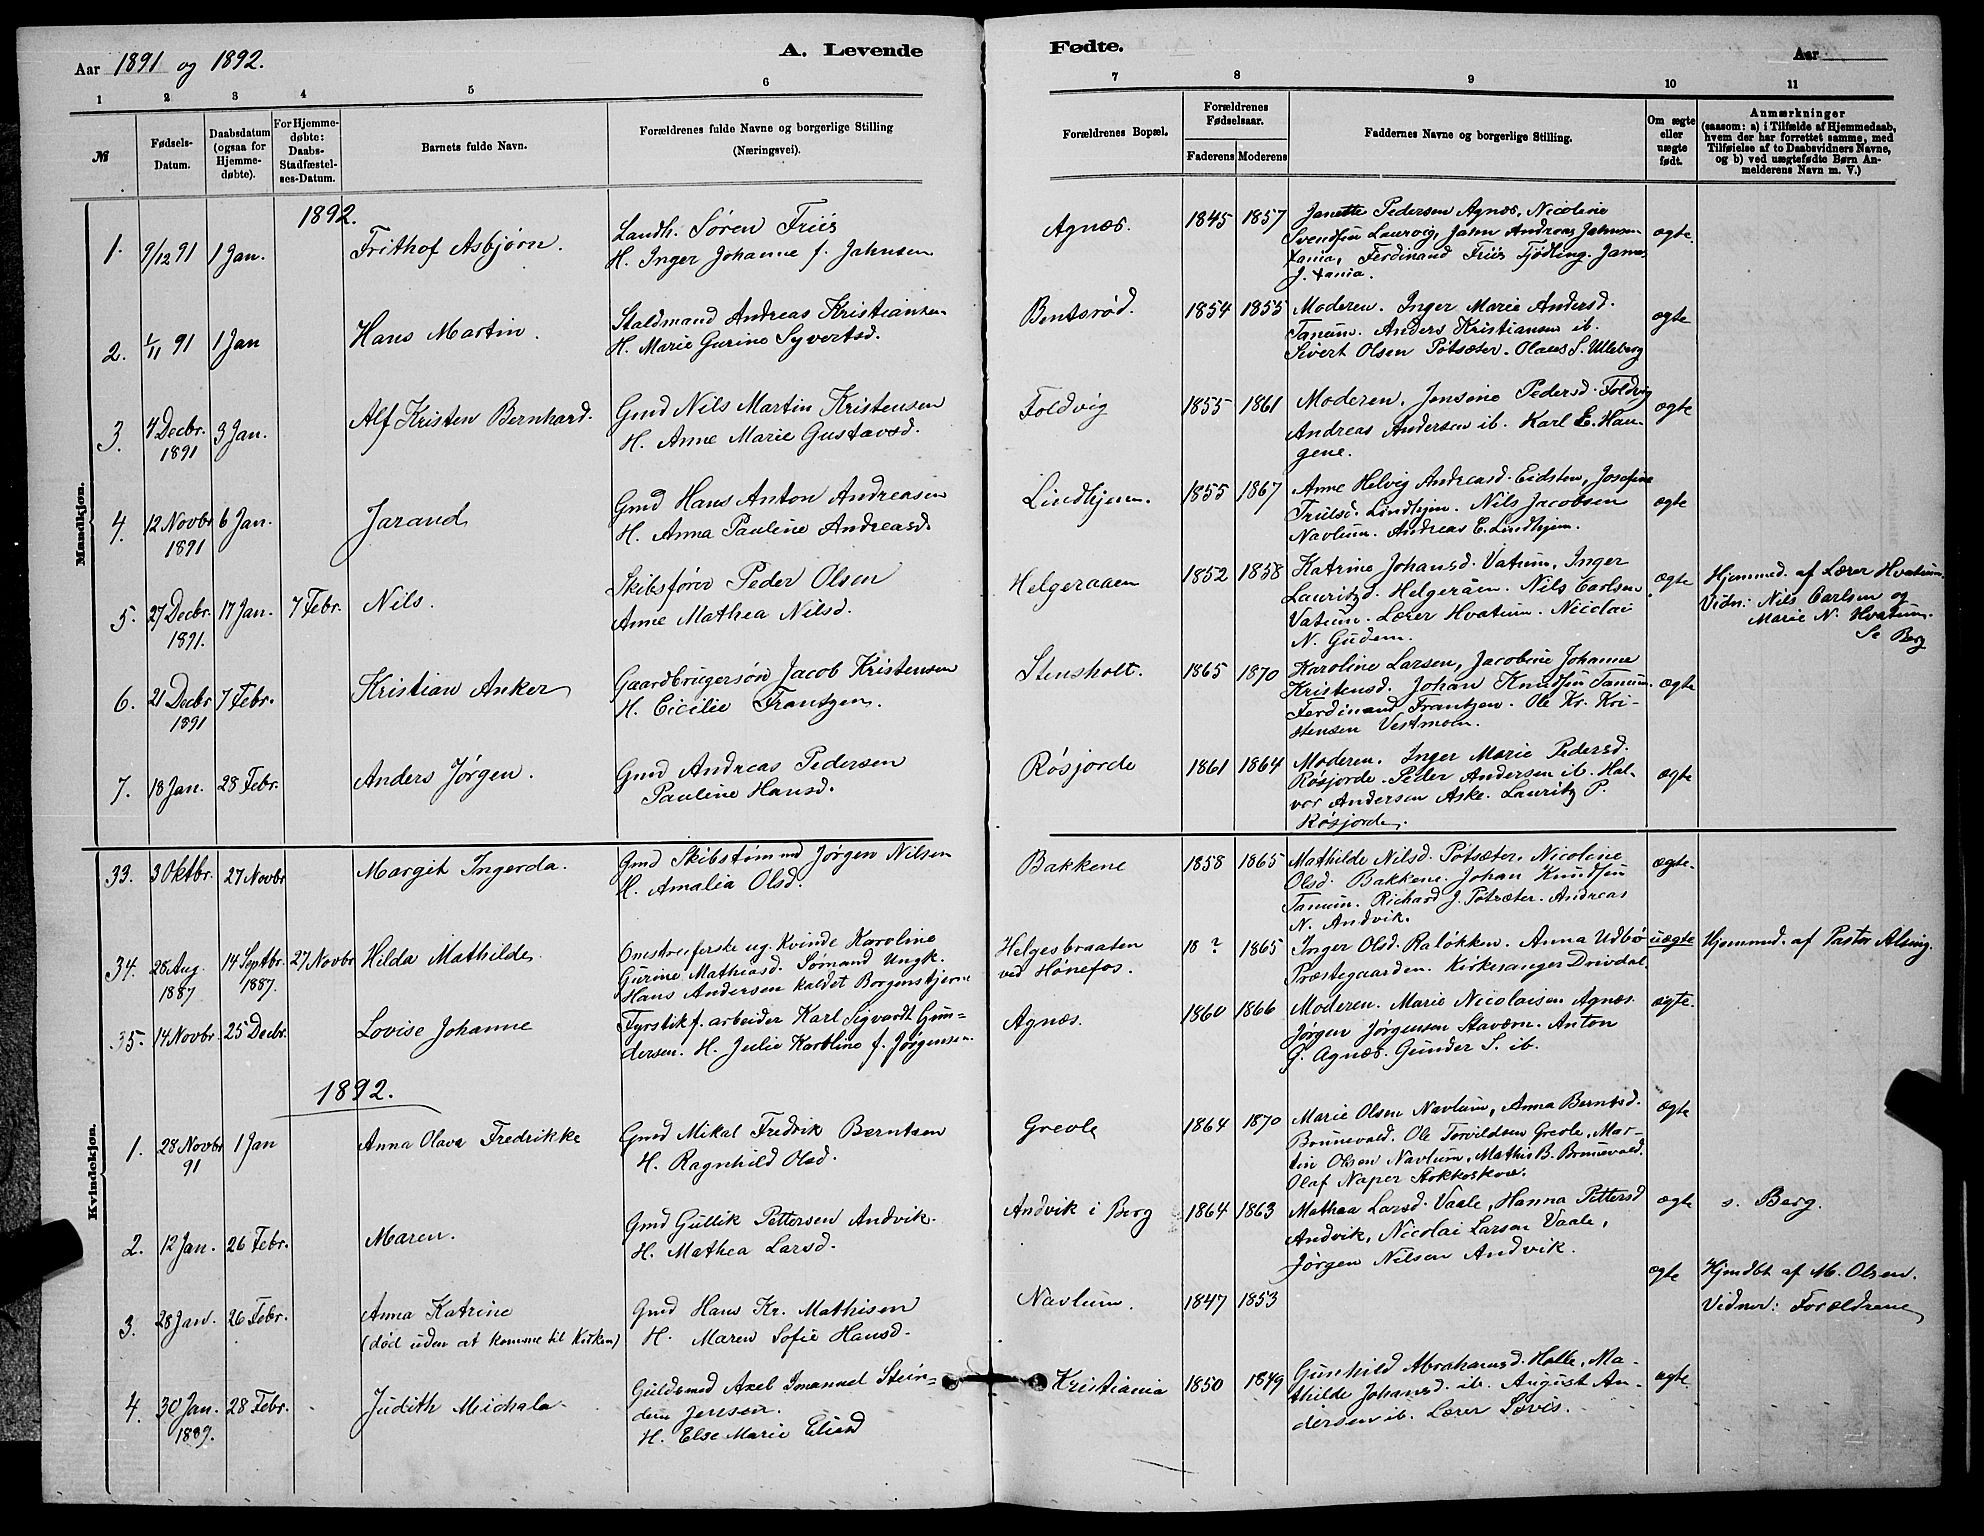 Aar 1891 og 1892. A. Levende Fødte. Aar
1 2 3 4 5 6 7 8 9 10 11
№ Fødsels-Datum. Daabsdatum (ogsaa for Hjemme-døbte). For Hjemme-døbte: Daabs-Stadfæstel-ses-Datum. Barnets fulde Navn. Forældrenes fulde Navne og borgerlige Stilling (Næringsvei). Forældrenes Bopæl. Forældrenes Fødselsaar. Faderens Moderens Faddernes Navne og borgerlige Stilling. Om ægte eller uægte født. Anmærkninger (saasom: a) i Tilfælde af Hjemmedaab, hvem der har forrettet samme, med Tilføielse af to Daabsvidners Navne, og b) ved uægtefødte Børn An-melderens Navn m. V.)
Mandkjøn.
1892.
1. 9/12 91 1 Jan. Frithof Asbjørn. Landh. Søren Friis
H. Inger Johanne f. Jahnsen Agnæs. 1845 1857 Janette Pedersen Agnæs, Nicoline
Svendsen Laurvig, Jahn Andreas Jahnsen
Xania, Ferdinand Friis Tjødling. James
J. Xania. ægte.
2. 1/11 91 1 Jan Hans Martin. Staldmand Andreas Kristiansen
H. Marie Gurine Syvertsd. Bentsrød. 1854 1855 Moderen. Inger Marie Andersd.
Tanum. Anders Kristiansen ib.
Sivert Olsen Pøtsæter. Olaus S. Ulleberg ægte
3. 4 Decbr. 1891 3 Jan. Alf Kristen Bernhard. Gmd Nils Martin Kristensen
H. Anne Marie Gustavsd. Foldvig 1855 1861 Moderen, Jensine Pedersd. Foldvig
Andreas Andersen ib. Karl E. Hau-
gene. ægte
4. 12 Novbr 1891 6 Jan. Jarand Gmd Hans Anton Andreasen
H. Anna Pauline Andreasd. Lindhjem. 1855 1867 Anne Helvig Andreasd. Eidsten, Josefine
Trulsd. Lindhjem. Nils Jacobsen
Navlum. Andreas E. Lindhjem. ægte
5. 27 Decbr. 1891. 17 Jan. 7 Febr. Nils. Skibsfører Peder Olsen
Anne Mathea Nilsd. Helgeraaen 1852 1858 Katrine Johansd. Vatum, Inger
Lauritzd. Helgeråen. Nils Carlsen
Vatum. Lærer Hvatum. Nicolai
N. Gudem. ægte Hjemmed. af Lærer Hvatum.
Vidn: Nils Carlsen og
Marie N. Hvatum.
Se Berg
6. 21 Decbr 1891 7 Febr. Kristian Anker Gaardbrugersøn Jacob Kristensen
H. Cicilie Frantzen. Stensholt. 1865 1870 Karoline Larsen, Jacobine Johanne
Kristensd. Johan Knudsen Tanum.
Ferdinand Frantzen. Ole Kr. Kri-
stensen Vestmoen. ægte
7. 18 Jan. 28 Febr. Anders Jørgen. Gmd Andreas Pedersen
Pauline Hansd. Røsjorde 1861 1864 Moderen. Inger Marie Pedersd.
Røsjorde. Peder Andersen ib. Hal-
vor Andersen Aske. Lauritz P.
Røsjorde. ægte
Kvindekjøn.
33. 3 Oktbr. 27 Novbr Margit Ingerda. Gmd Skibstømmd Jørgen Nilsen
H. Amalia Olsd. Bakkene 1858 1865 Mathilde Nilsd. Pøtsæter. Nicoline
Olsd. Bakkene. Johan Knudsen
Tanum. Richard J. Pøtsæter. Andreas
N. Andvik. ægte.
34. 28 Aug. 1887 14 Septbr. 1887. 27 Novbr Hilda Mathilde Omstreiferske ug. Kvinde Karoline
Gurine Mathiasd. Sømand Ungk.
Hans Andersen kaldet Borgenstjerne Helgesbraaten
ved Hønefos. 18 ? 1865 Inger Olsd. Raløkken. Anna Udbø
Præstegaarden. Kirkesanger Drivdal. uægte Hjemmed. af Pastor Alsing.
35. 14 Novbr. 25 Decbr. Lovise Johanne Fyrstikf. arbeider Karl Sigvardt Gun-
dersen. H. Julie Karoline f. Jørgensen. Agnæs. 1860 1866 Moderen. Marie Nicolaisen Agnæs.
Jørgen Jørgensen Stavern. Anton
G. Agnæs. Gunder S. ib. ægte.
1892.
1. 28 Novbr 91 1 Jan Anna Olava Fredrikke Gmd Mikal Fredrik Berntsen
H. Ragnhild Olsd. Greole 1864 1870 Marie Olsen Navlum, Anna Berntsd.
Brunevald. Ole Torvildsen Greole, Mar-
tin Olsen Navlum, Mathis B. Brunevald.
Olaf Naper Stokkeskov. ægte
2. 12 Jan. 26 Febr. Maren. Gmd Gullik Pettersen Andvik.
H. Mathea Larsd. Andvik i Berg 1864 1863 Mathea Larsd. Vaale, Hanna Pettersd
Andvik, Nicolai Larsen Vaale,
Jørgen Nilsen Andvik. ægte s. Berg.
3. 28 Jan. 26 Febr. Anna Katrine
(død uden at komme til Kirken) Gmd Hans Kr. Mathisen
H. Maren Sofie Hansd. Navlum. 1847 1853 ægte Hjmdbt af M. Olsen.
Vidner: Forældrene
4. 30 Jan. 1889. 28 Febr. Judith Michala Guldsmed Axel Imanuel Stein-
dem Jensen.
H. Else Marie Eliasd Kristiania 1850 1849 Gunhild Abrahamsd. Halle, Ma-
thilde Johansd. ib. August An-
dersen ib. Lærer Løvis. ægte.